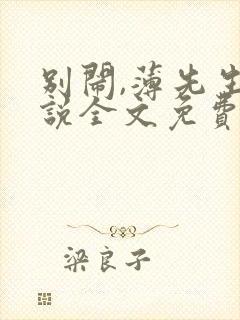 別鬧,薄先生
說全文免費
梁良子